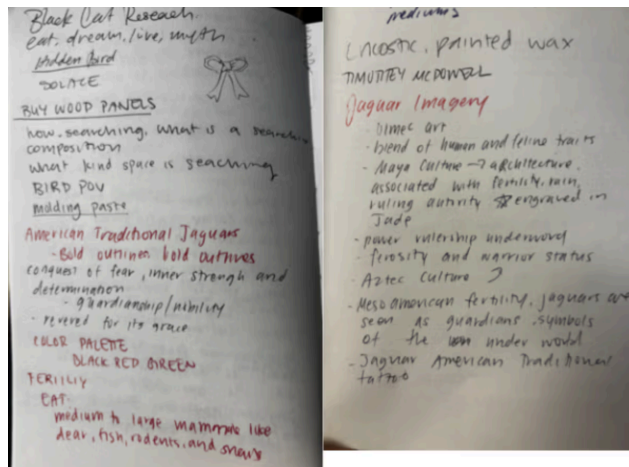 Black Cat Reseach.
eat, dream, live, myth
Hidden Bird
SOLACE
BUY WOOD PANELS
how. searching. what is a searching
composition
what kind space is seaching
BIRD POV
molding paste
American Traditional Jaguars
- Bold outlines bold outlines
conquest of fear, inner strengh and
determination
- guardianship/nobility
- revered for its grace
COLOR PALETTE
BLACK RED GREEN
FERILIY
EAT.
medium to large mammals like
dear, fish, rodents, and snails
mediums
Encostic. painted wax
TIMOTHEY MCDOWELL
Jaguar Imagery
- Olmec art
- blend of human and feline traits
- Maya Culture → architecture.
associated with fertility, rain,
ruling autirity engraved in
Jade
- power rulership underword
- ferosity and warrior status
- Aztec Culture
- Meso american fertility. jaguars are
seen as guardians. symbols
of the under world
- Jaguar American Traditional
tattoo